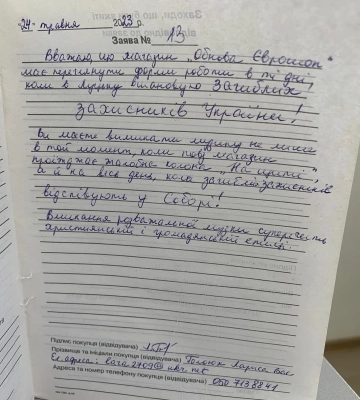 "24" травня 2023 р.
Заява № 13
Вважаю, що магазин „Обнова Євросток"
має переглянути форми роботи в ті дні,
коли в Луцьку вшановую Загиблих
Захисників України!
Ви маєте вимикати музику не лише
в той момент, коли повз магазин
проїжджає жалобна колона „На щиті",
а й на весь день, коли загиблих захисників
відспівують у Соборі!
Вмикання розважальної музики суперечить
християнській і громадянській етиці.
Підпис покупця (відвідувача)
Прізвище та ініціали покупця (відвідувача) Лариса
Ел. адреса:
Адреса та номер телефону покупця (відвідувача) 050 7138841